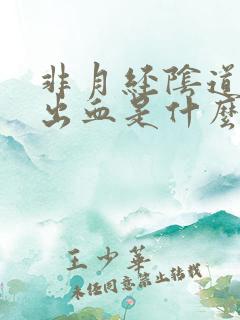 非月経陰道
出血是什麽
王少華
未经同意禁止转载